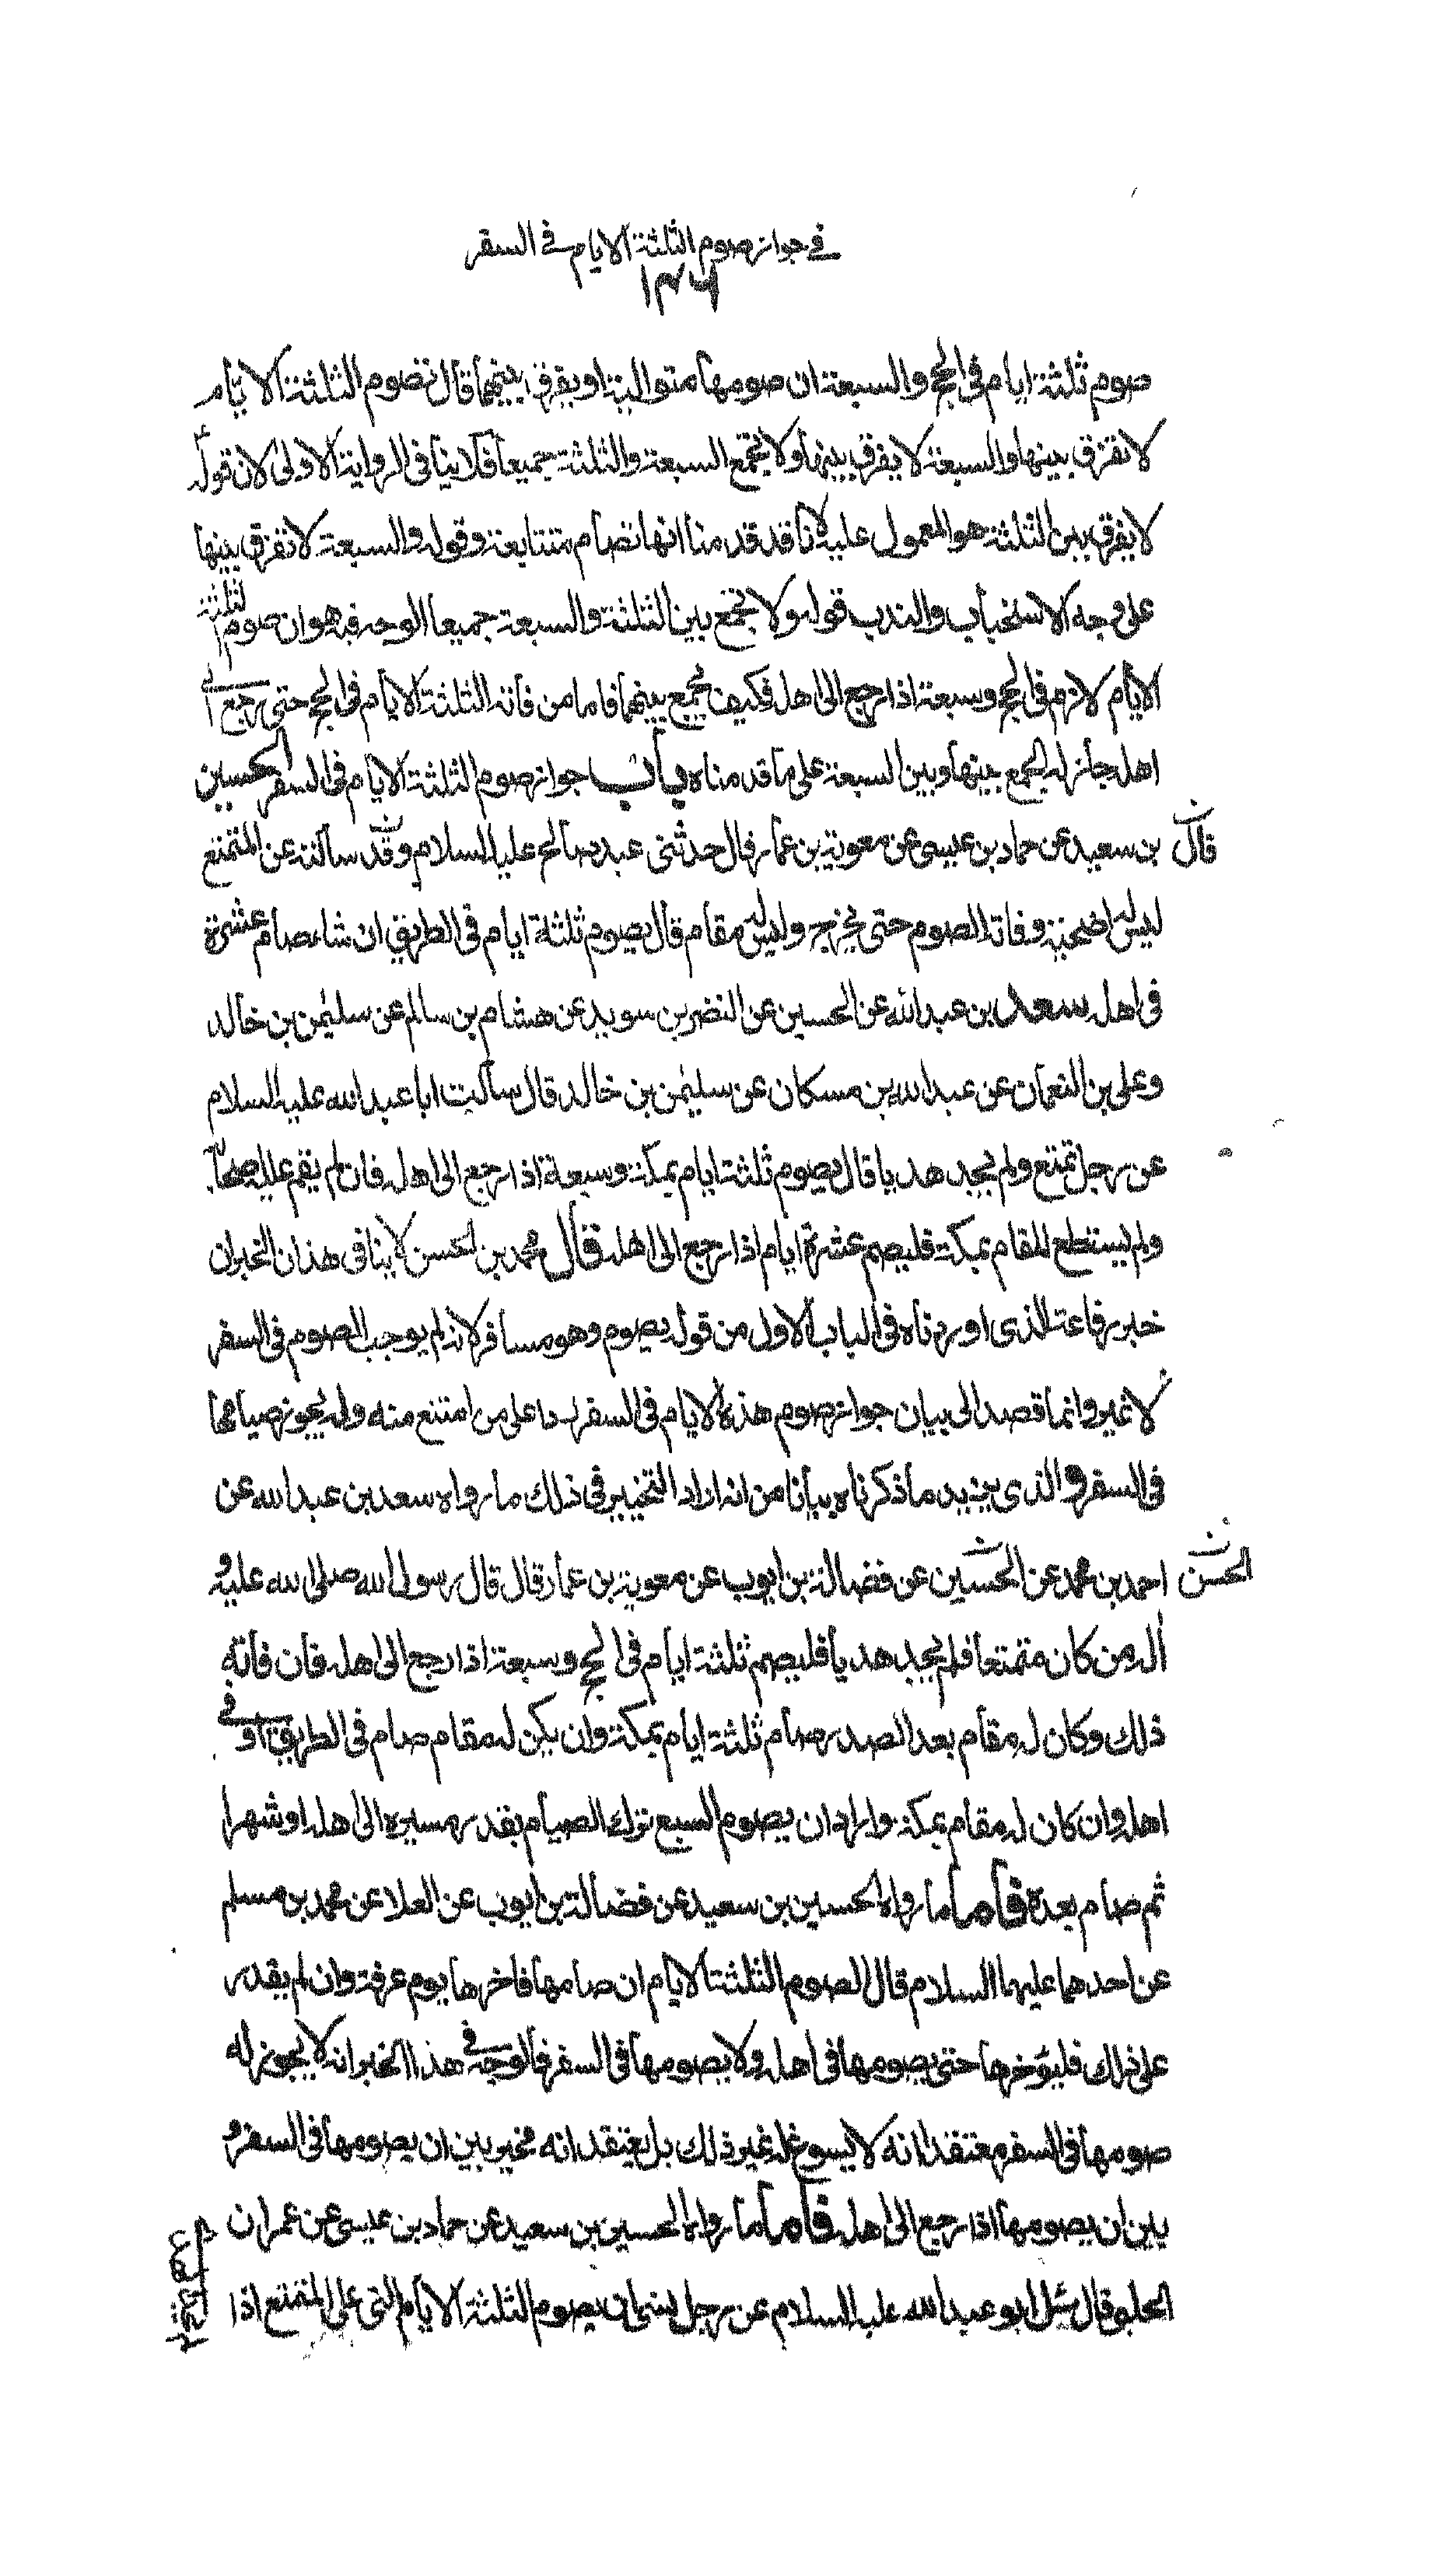 في جواز صوم الثلثة الايام في السفر
صوم ثلثة ايام في الحج والسبعة ان صومها متوالية او يفرق بينهما قال تصوم الثلثة الايام
لا تفرق بينها والسبعة لا يفرق بينها ولا يجمع السبعة والثلثة جميعا فلا ينافى الرواية الاولى لان قوله
لا يفرق بين الثلثة هو المعمول عليه لانا قد قدمنا انها تصام متتابعة وقوله والسبعة لا تفرق بينها
على وجه الاستحباب والندب قوله ولا يجمع بين الثلثة والسبعة جميعا الوجه فيه هو ان صوم الثلثة
الايام لازم في الحج وسبعة اذا رجع الى اهله فكيف يجمع بينهما فاما من فاته الثلثة الايام في الحج حتى يرجع الى
اهله جاز له الجمع بينها وبين السبعة على ما قدمناه باب جواز صوم الثلثة الايام في السفر الحسين
بن سعيد عن حماد بن عيسى عن معوية بن عمار قال حدثنى عبد صالح عليه السلام وقد سالته عن المتمتع
قال
ليس له اضحية وفاته الصوم حتى يخرج وليس له مقام قال يصوم ثلثة ايام في الطريق ان شاء صام عشرة
في اهله سعد بن عبد الله عن الحسين عن النضر بن سويد عن هشام بن سالم عن سليمن بن خالد
وعلى بن النعمان عن عبد الله بن مسكان عن سليمن بن خالد قال سالت ابا عبد الله عليه السلام
عن رجل تمتع ولم يجد هديا قال يصوم ثلثة ايام بمكة وسبعة اذا رجع الى اهله فان لم يقم عليه اصحابه
ولم يستطع المقام بمكة فليصم عشرة ايام اذا رجع الى اهله قال محمد بن الحسن لا ينافى هذان الخبران
خبر رفاعة الذى اوردناه في الباب الاول من قوله يصوم وهو مسافر لانه لم يوجب الصوم في السفر
لا غير وانما قصد الى بيان جواز صوم هذه الايام في السفر ردا على من امتنع منه ولم يجوز صيامها
في السفر والذى يزيد ما ذكرناه بيانا من انه اراد التخيير في ذلك ما رواه سعد بن عبد الله عن
احمد بن محمد عن الحسين عن فضالة بن ايوب عن معوية بن عمار قال قال رسول الله صلى الله عليه و
الحسن
آله من كان متمتعا فلم يجد هديا فليصم ثلثة ايام في الحج وسبعة اذا رجع الى اهله فان فاته
ذلك وكان له مقام بعد الصدر صام ثلثة ايام بمكة وان يكن له مقام صام في الطريق او في
اهله وان كان له مقام بمكة واراد ان يصوم السبع ترك الصيام بقدر مسيره الى اهله او شهرا
ثم صام بعده فاما ما رواه الحسين بن سعيد عن فضالة بن ايوب عن العلا عن محمد بن مسلم
عن احدهما عليهما السلام قال الصوم الثلثة الايام ان صامها فاخرها يوم عرفة وان لم يقدر
على ذلك فليؤخرها حتى يصومها في اهله ولا يصومها في السفر فالوجه في هذا الخبر انه لا يجوز له
صومها في السفر معتقدا انه لا يسوغ له غير ذلك بل يعتقد انه مخير بين ان يصومها في السفر و
بين ان يصومها اذا رجع الى اهله فاما ما رواه الحسين بن سعيد عن حماد بن عيسى عن عمران
الحلبى قال سئل ابو عبد الله عليه السلام عن رجل نسى ان يصوم الثلثة الايام التى على المتمتع اذا